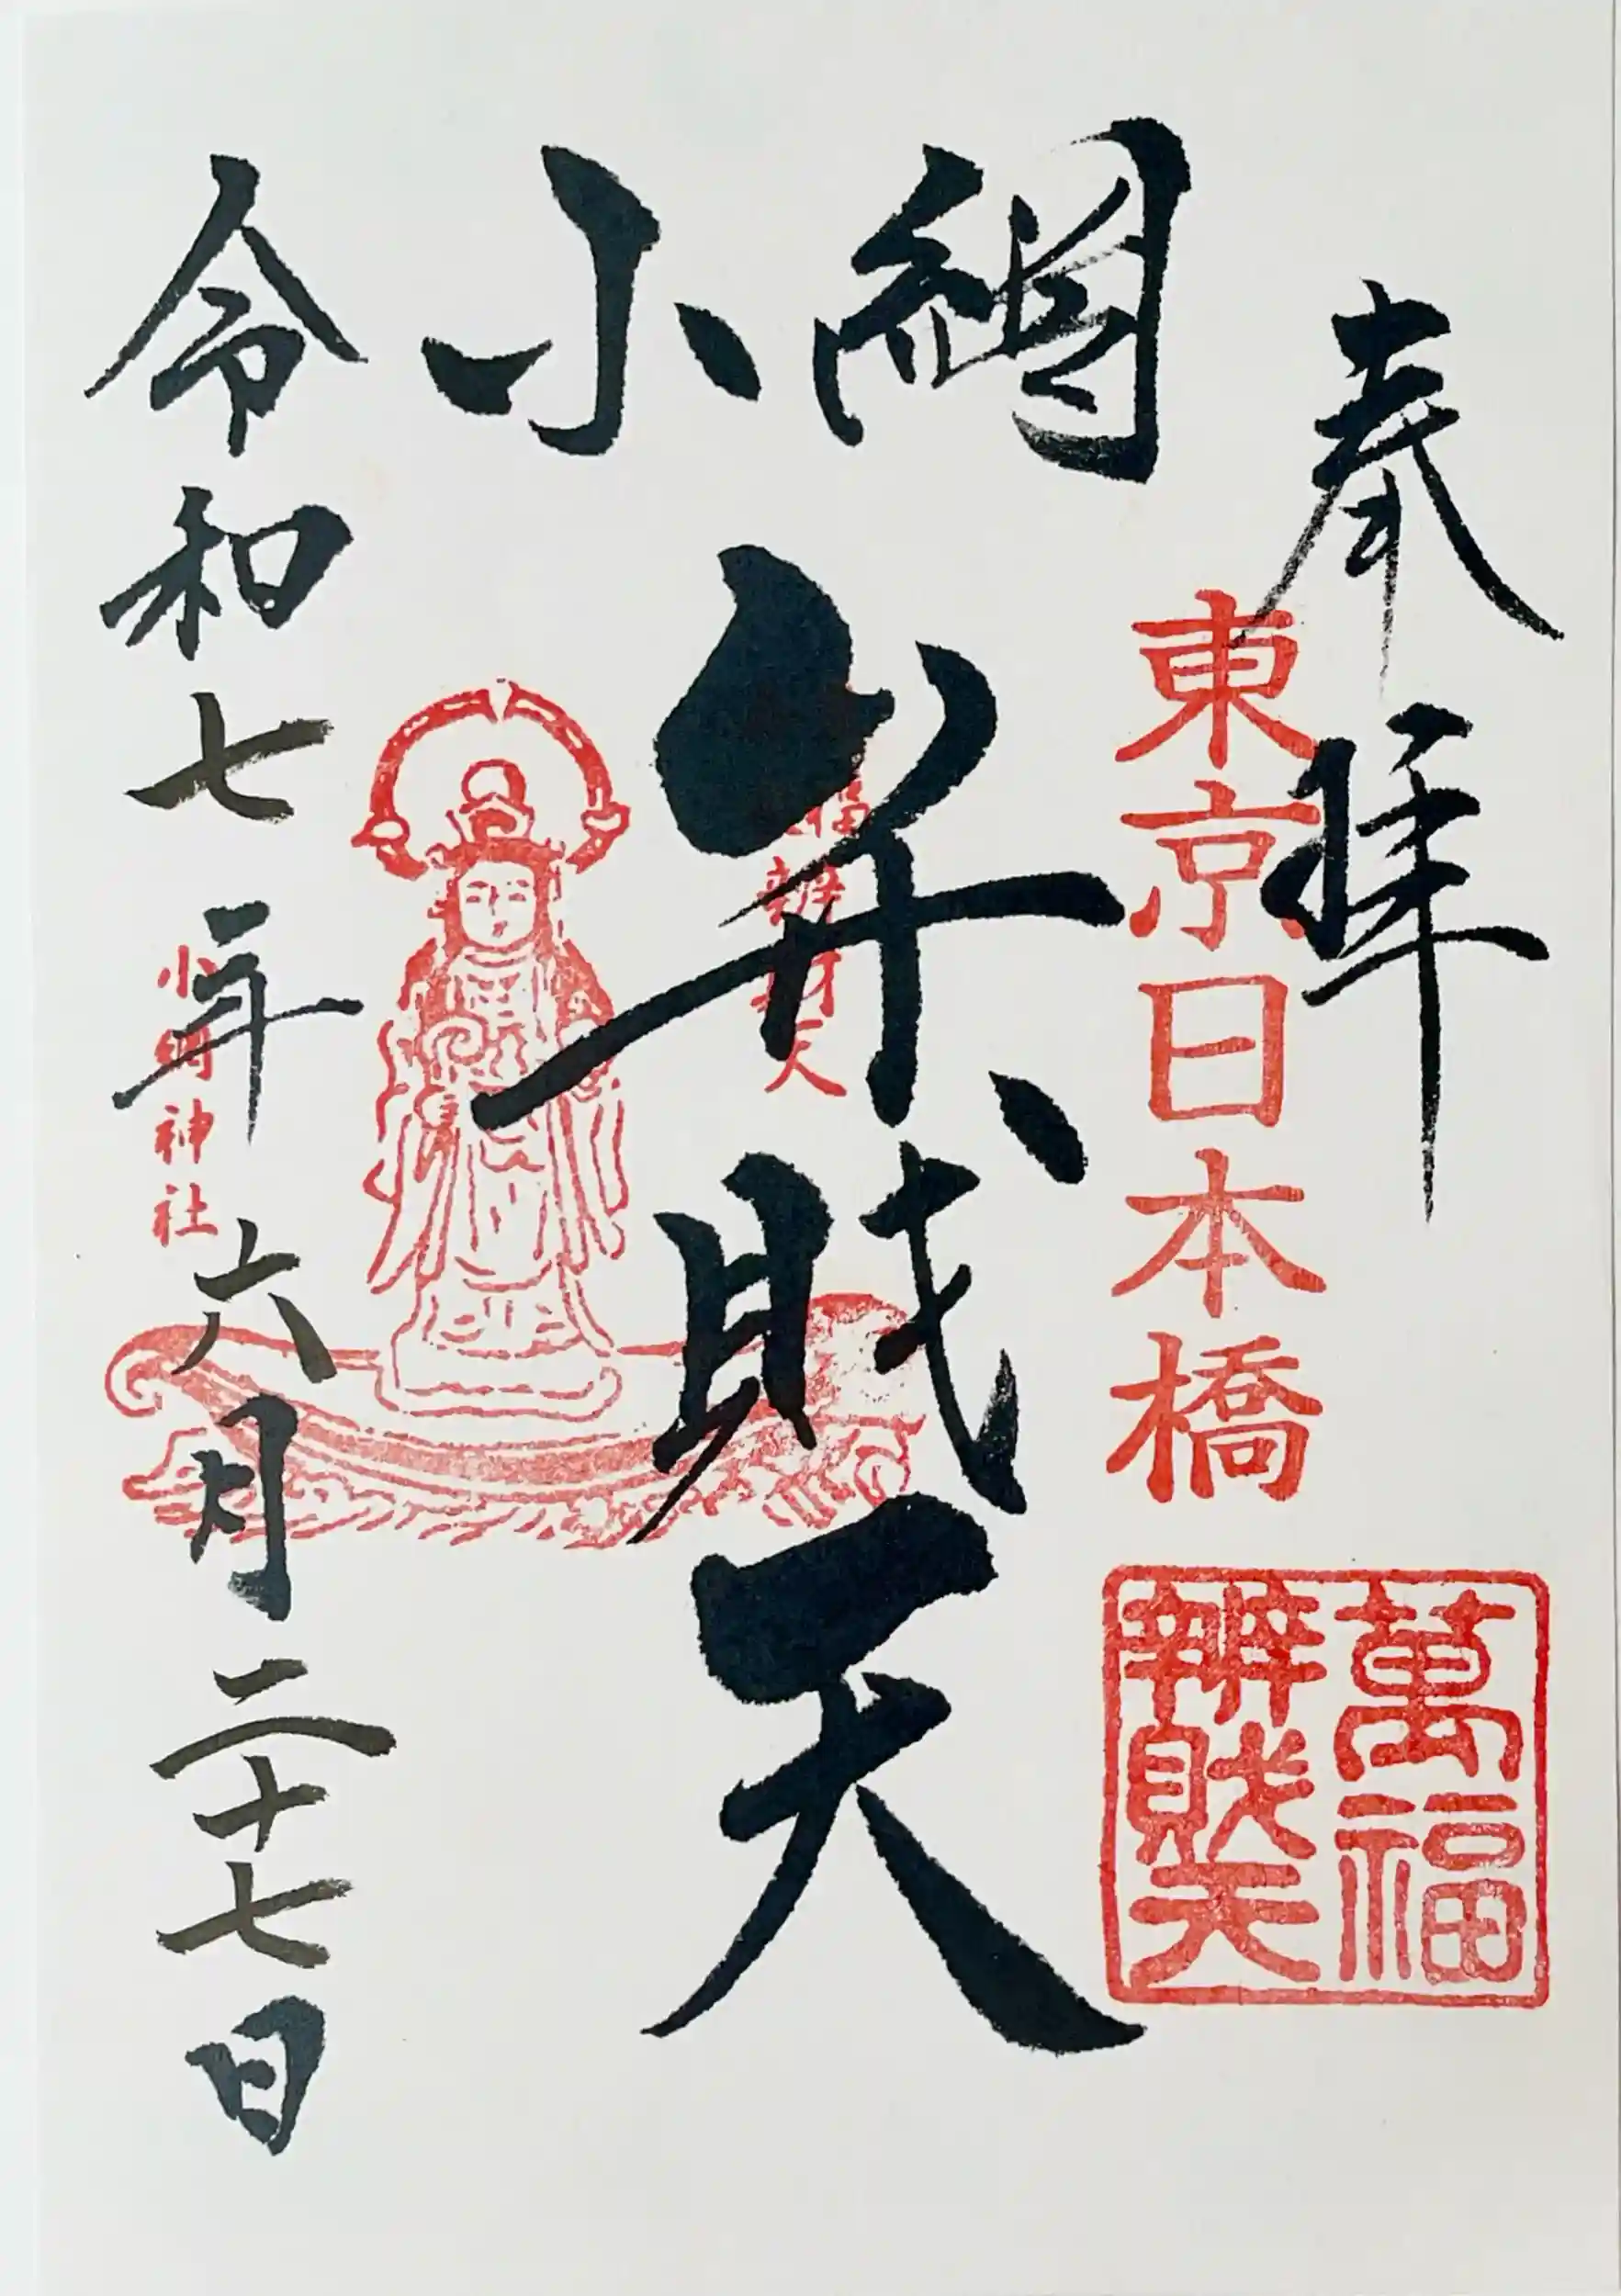 奉拝
東京日本橋
萬福
辨財天
網小
弁財天
福辨財天
小網神社
令和七年六月二十七日